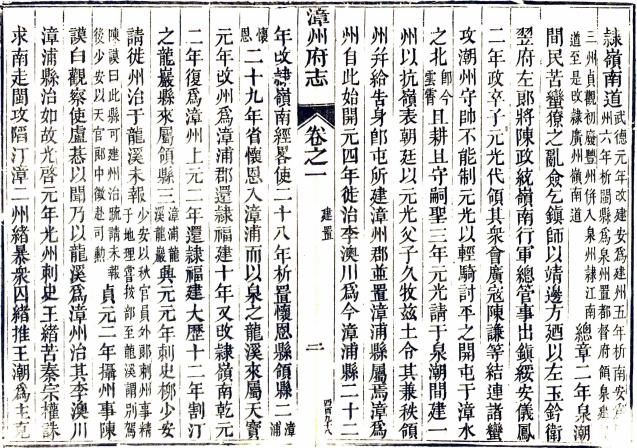 隸嶺南道
武德元年改建安為建州五年析南安
州六年析閩縣為泉州置都督府領泉建
三州貞觀初廢豐州併入泉州隸江南
道至是改隸廣州嶺南道
總章二年泉潮
間民苦蠻獠之亂僉乞鎮帥以靖邊方廼以左玉鈐衛
翌府左郎將陳政統嶺南行軍總管事出鎮綏安儀鳳
二年政卒子元光代領其衆會廣寇陳謙等結連諸蠻
攻潮州守帥不能制元光以輕騎討平之開屯于漳水
之北
即今
雲霄
且耕且守嗣聖三年元光請于泉潮間建一
州以抗嶺表朝廷以元光父子久牧茲土令其兼秩領
州并給告身卽屯所建漳州郡並置漳浦縣屬焉漳爲
州自此始開元四年徙治李澳川爲今漳浦縣二十二
漳州府志
卷之一
建置
二
四百九十八
年改隸嶺南經畧使二十八年析置懷恩縣領縣二
漳
浦
懷
恩
二十九年省懷恩入漳浦而以泉之龍溪來屬天寶
元年改州爲漳浦郡還隸福建十年又改隸嶺南乾元
二年復爲漳州上元二年還隸福建大歷十二年割汀
之龍巖縣來屬領縣三
漳浦龍
溪龍巖
興元元年刺史柳少安
請徙州治于龍溪未報
少安以秋官員外郎刺州事精
于地理嘗按部至龍溪謂別駕
陳謨曰此縣可建州治疏請未報
後少安以天官郎中徵赴司勳
貞元二年攝州事陳
謨白觀察使盧惎以聞乃以龍溪爲漳州治其李澳川
漳浦縣治如故光啓元年光州刺史王緒苦秦宗權誅
求南走閩攻陷汀漳二州緒暴衆囚緒推王潮爲主克